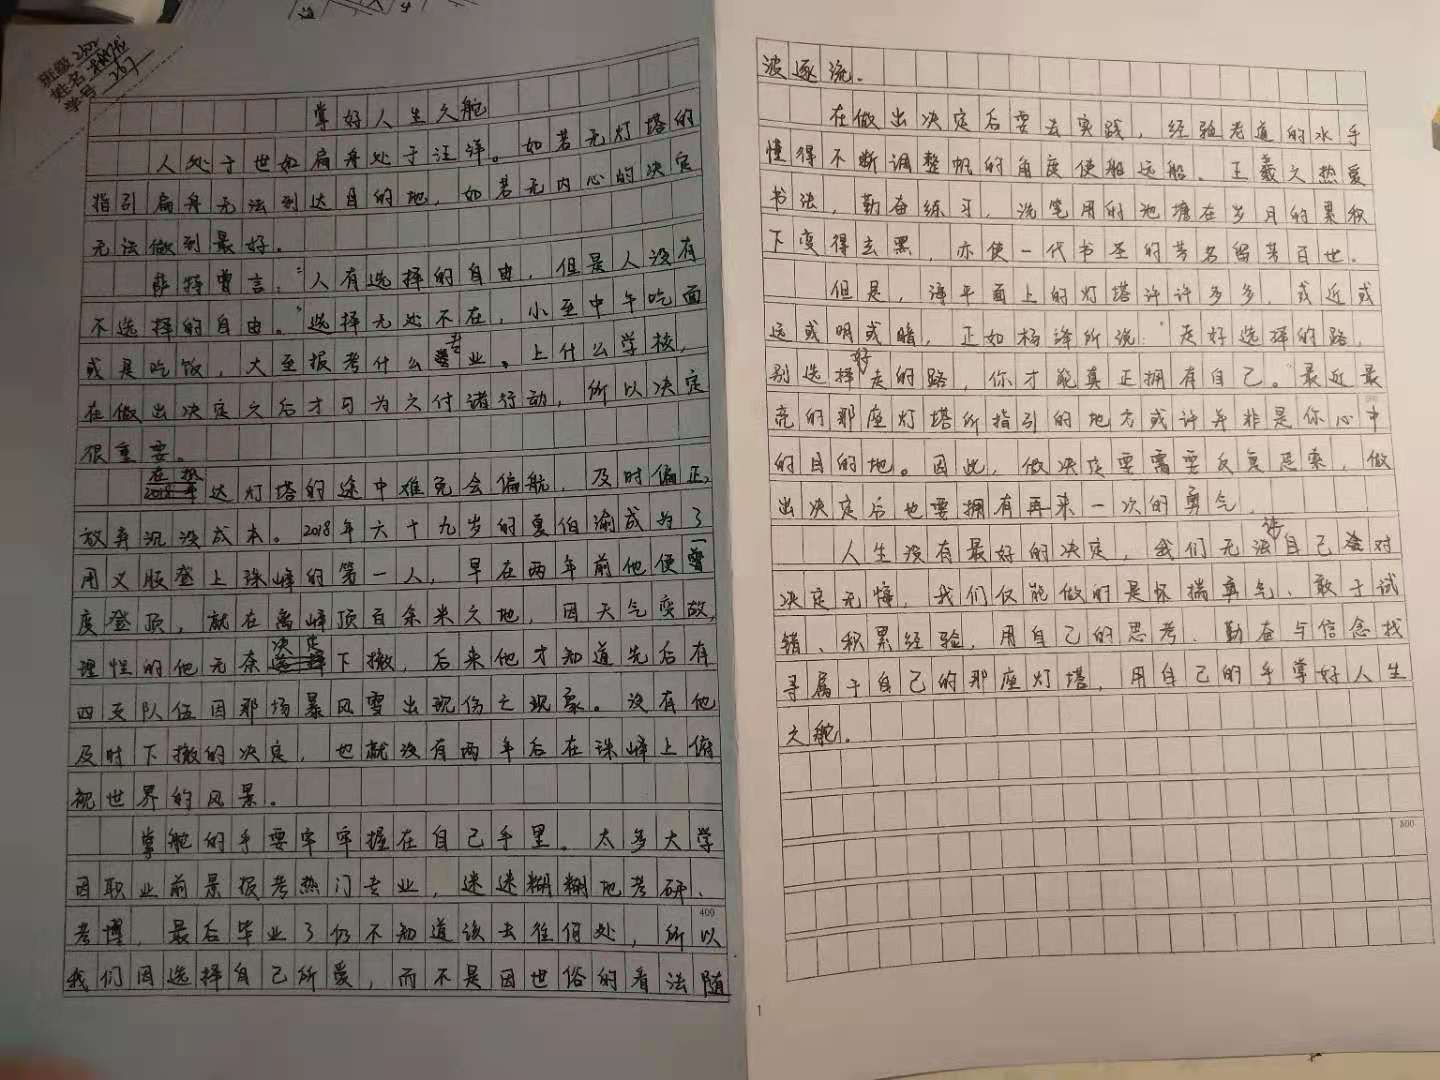 班级 2302
姓名
学号 207
掌好人生之舵
人处于世如扁舟处于汪洋。如若无灯塔的
指引扁舟无法到达目的地，如若无内心的决定
无法做到最好。
萨特曾言：“人有选择的自由，但是人没有
不选择的自由。”选择无处不在，小至中午吃面
或是吃饭，大至报考什么专业、上什么学校，
在做出决定之后才可为之付诸行动，所以决定
很重要。
在热达灯塔的途中难免会偏航，及时偏正，
放弃沉没成本。2018年六十九岁的夏伯渝成为了
用义肢登上珠峰的第一人，早在两年前他便一
度登顶，就在离峰顶百余米之地，因天气突故，
理性的他无奈决定下撤，后来他才知道先后有
四支队伍因那场暴风雪出现伤亡现象。没有他
及时下撤的决定，也就没有两年后在珠峰上俯
视世界的风景。
掌舵的手要牢牢握在自己手里。太多大学
因职业前景报考热门专业，迷迷糊糊地考研、
考博，最后毕业了仍不知道该去往何处，所以
400
我们因选择自己所爱，而不是因世俗的看法随
波逐流.
在做出决定后要去实践，经验老道的水手
懂得不断调整帆的角度使船远船．王羲之热爱
书法，勤奋练习，洗笔用的池塘在岁月的累积
下变得玄黑，亦使一代书圣的芳名留芳百世.
但是，海平面上的灯塔许许多多，或近或
远或明或暗，正如杨泽所说：“走好选择的路，
别选择好走的路，你才能真正拥有自己。”最近最
亮的那座灯塔所指引的地方或许并非是你心中
的目的地。因此，做决定要需要反复思索，做
出决定后也要拥有再来一次的勇气.
人生没有最好的决定，我们无法待自己对
决定无悔，我们仅能做的是怀揣勇气、敢于试
错、积累经验，用自己的思考、勤奋与信念找
寻属于自己的那座灯塔，用自己的手掌好人生
之舵.
800
1